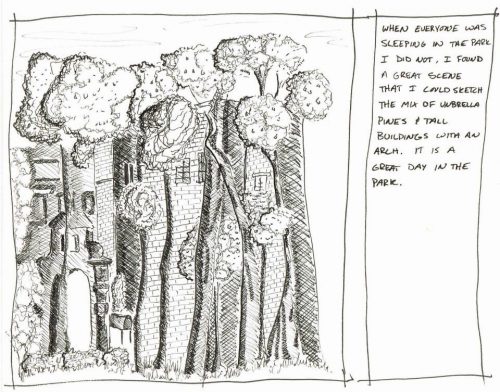 WHEN EVERYONE WAS
SLEEPING IN THE PARK
I DID NOT. I FOUND
A GREAT SCENE
THAT I COULD SKETCH
THE MIX OF UMBRELLA
PINES & TALL
BUILDINGS WITH AN
ARCH. IT IS A
GREAT DAY IN THE
PARK.